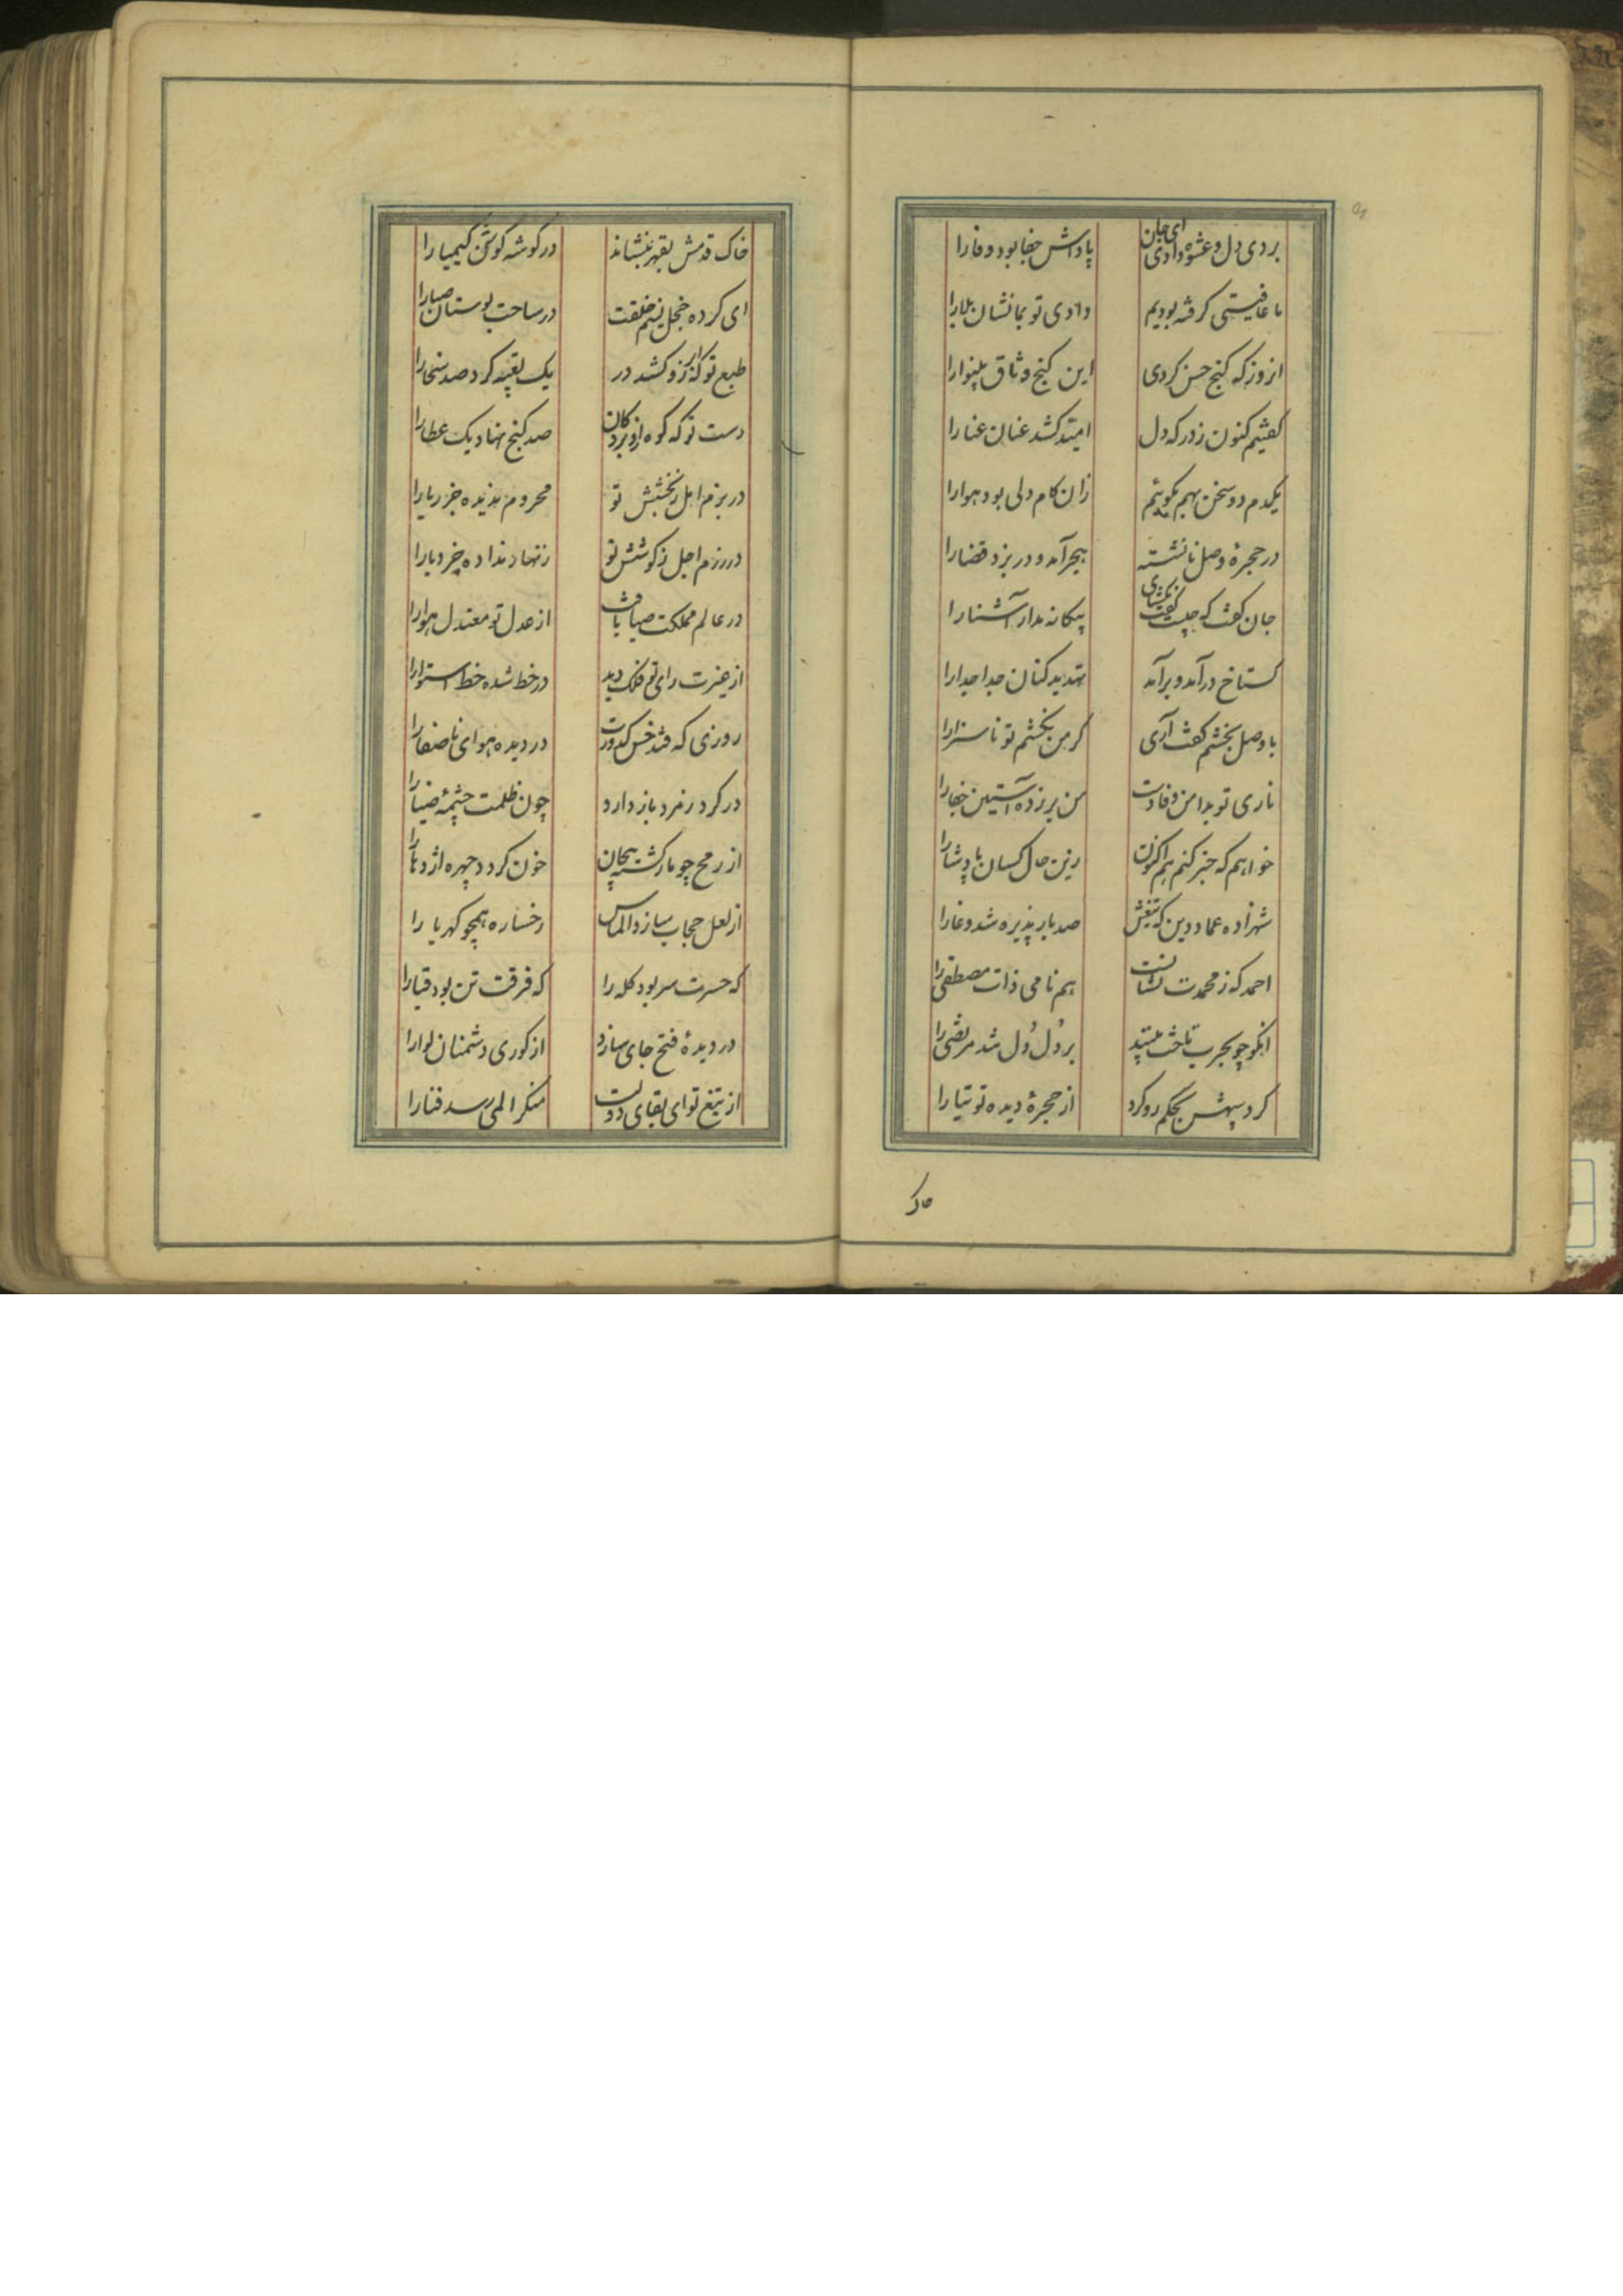 بردی دل و عشوه دادی ای جان پاداش جفا بود وفا را
ما عافیتی گرفته بودیم دادی تو بما نشان بلا را
انروز که کنج حسن کردی این کنج وثاق بینوا را
گفتیم کنون زدر که دل امید کشد عنان عنا را
یکدم دو سخن بهم بگوئیم زان کام دلی بود هوا را
در حجرهٔ وصل نانشسته هجر آمد و در بزد قضا را
جان گفت که چیست گفت بگشای بیگانه مدار آشنا را
گستاخ در آمد و بر آمد تهدید کنان جدا جدا را
با وصل بخشم گفت آری گر من بخشم تو ناسزا را
ناری تو بدامن وفا دست من بر زده آستین جفا را
خواهم که خبر کنم هم اکنون زین حال کسان پادشا را
شهزاده عماد دین که تیغش صد بار پذیره شد وغا را
احمد که ز محمدت نشانست هم نامی ذات مصطفی را
انکو چو بحرب تاخت بینید بر دُل دُل شد مرتضی را
گرد سپهش بحکم رو کرد از حجرهٔ دیده توتیا را
خاک
خاک قدمش بقهر بنشاند در گوشه گوش کیمیا را
ای کرده خجل نسیم خلقت در ساحت بوستان صبا را
طبع تو که ابر ازو کشد در یک تعبیه کرد صد سخا را
دست تو که کوه ازو برد کان صد گنج نهاد یک عطا را
در بزم امل ز بخشش تو محروم ندیده جز ریا را
در رزم اجل ز کوشش تو زنهار نداده جز دبا را
در عالم مملکت صبا یافت از عدل تو معتدل هوا را
از غیرت رای تو فلک دید در خط شده خط استوا را
روزی که فتد خس کدورت در دیده هوای با صفا را
در گرد زمرد باز دارد چون ظلمت چشمهٔ ضیا را
از رمح چو مار گشته پیچان خون گردد چهره اژدها را
از لعل حجاب سازد الماس رخساره همچو کهربا را
که حسرت سر بود کله را که فرقت تن بود قبا را
در دیدهٔ فتح جای سازد از کوری دشمنان لوا را
از تیغ تو ای بقای دولت منکر المی رسد فنا را